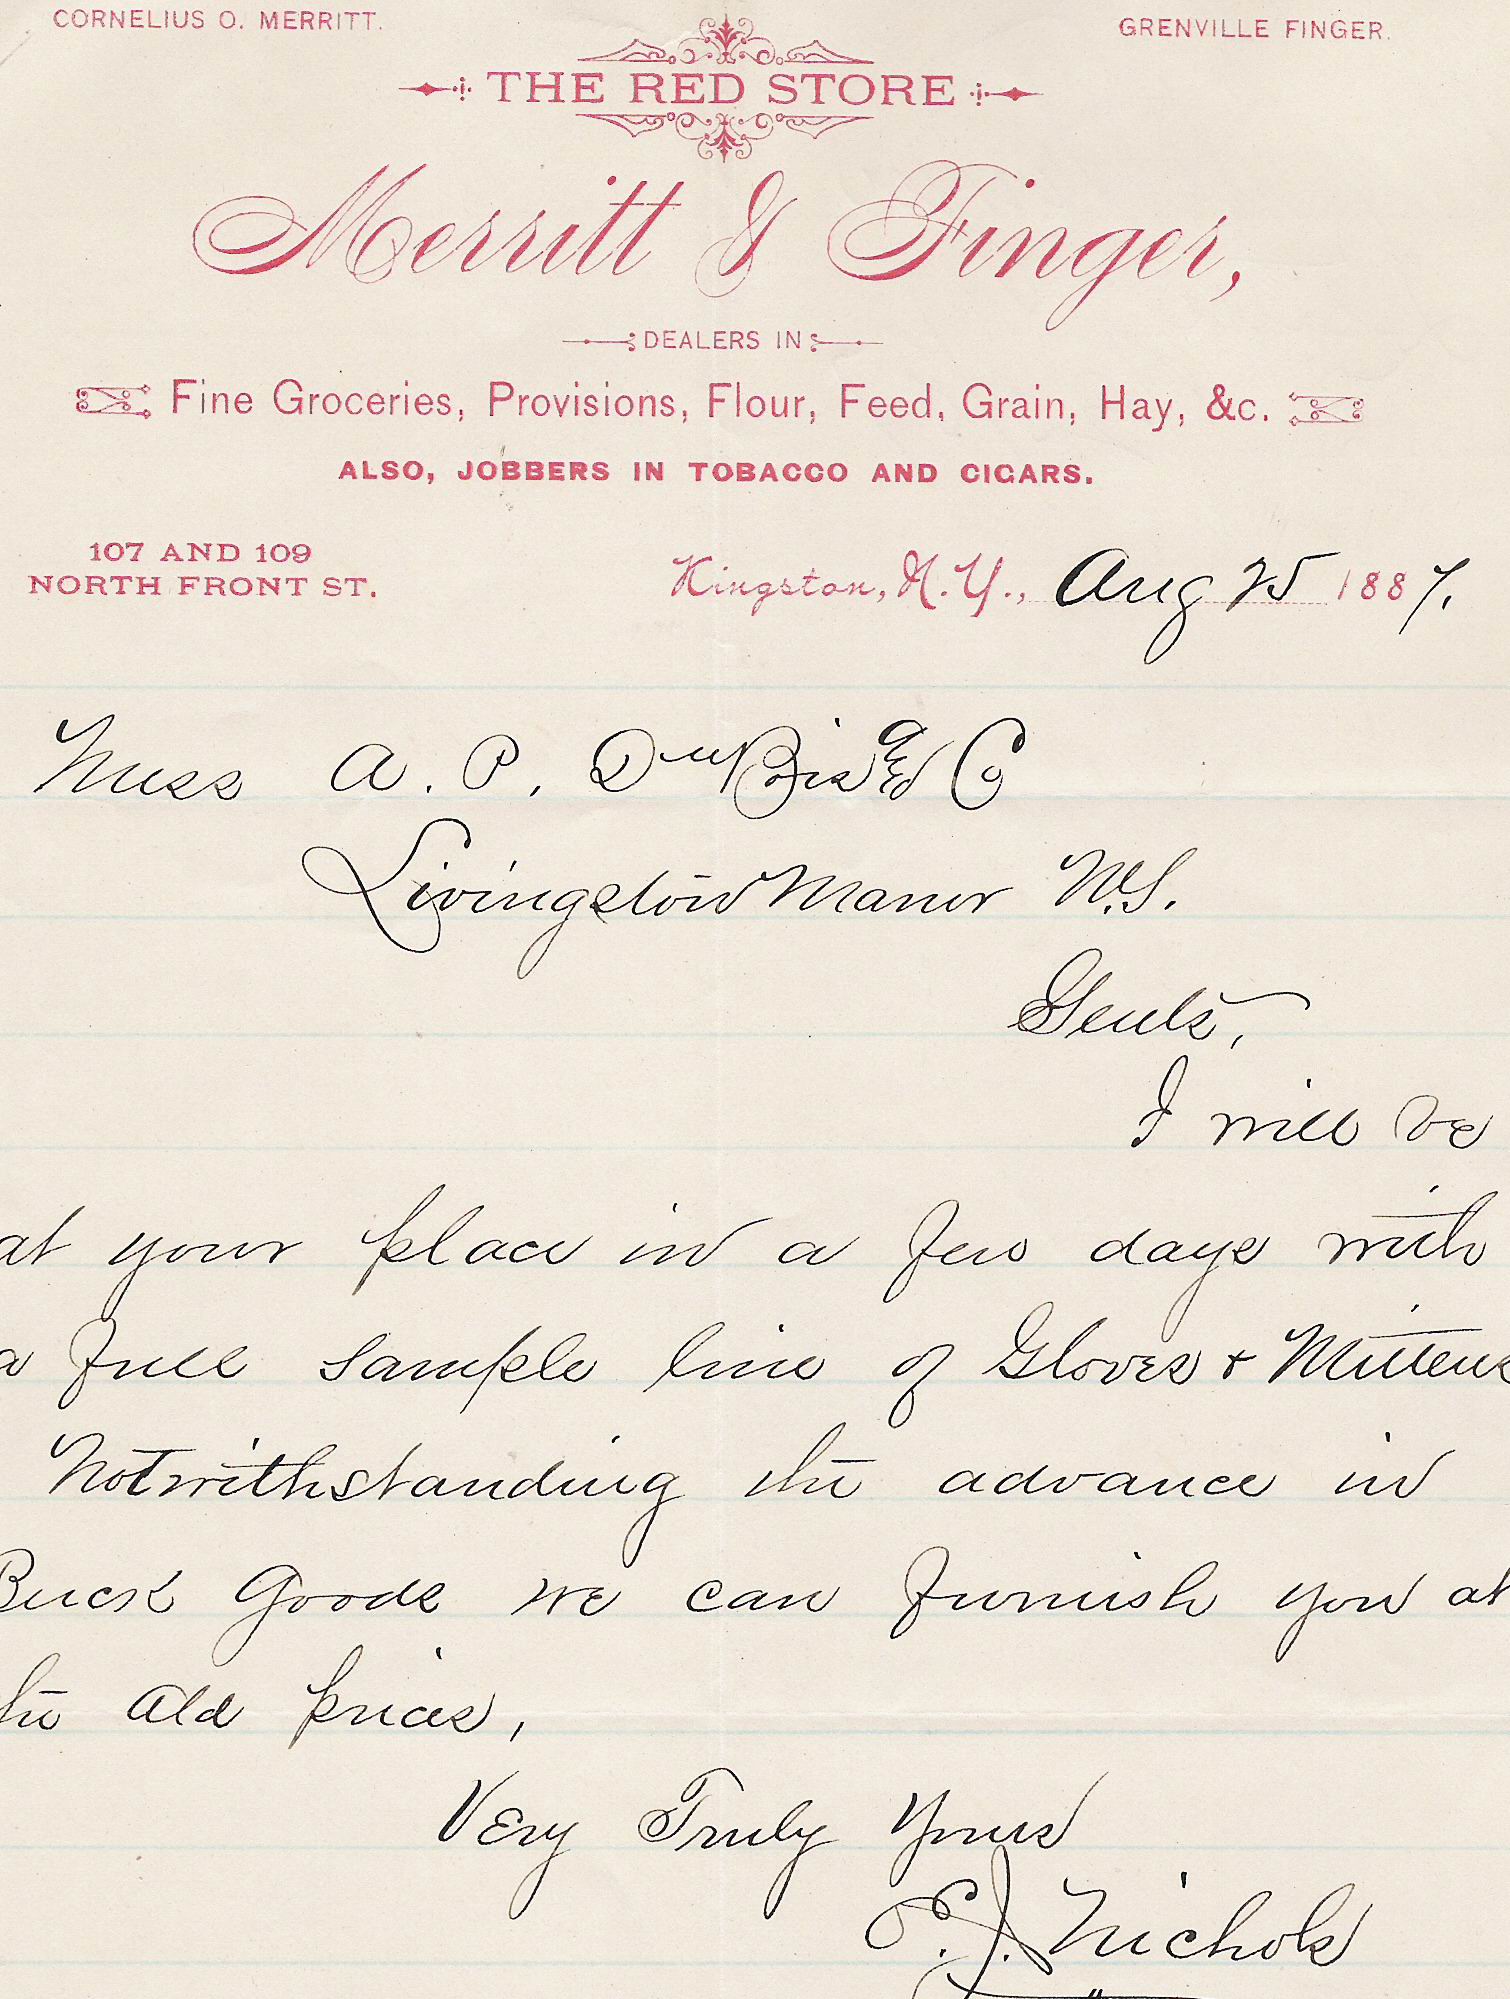 CORNELIUS O. MERRITT. GRENVILLE FINGER.
THE RED STORE
Merritt & Finger,
DEALERS IN
Fine Groceries, Provisions, Flour, Feed, Grain, Hay, &c.
ALSO, JOBBERS IN TOBACCO AND CIGARS.
107 AND 109
NORTH FRONT ST.
Kingston, N.Y., Aug 25 1887.
Mess A. P. DuBois & Co
Livingston Manor N.Y.
Gents,
I will be
at your place in a few days with
a full sample line of Gloves + Mittens
Notwithstanding the advance in
Buck Goods we can furnish you at
the old prices,
Very Truly Yours
E. J. Nichols